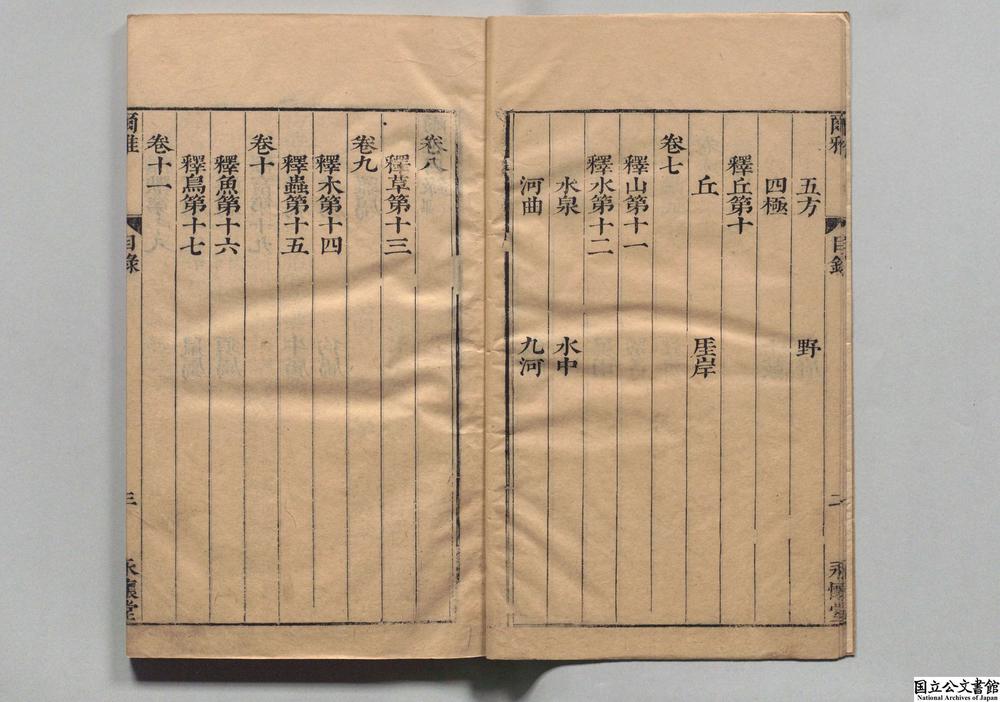 爾雅 目錄 二 永懷堂
五方 野
四極
釋丘第十
丘 厓岸
卷七
釋山第十一
釋水第十二
水泉 水中
河曲 九河
卷八
釋草第十三
卷九
釋木第十四
釋蟲第十五
卷十
釋魚第十六
釋鳥第十七
卷十一
爾雅 目錄 三 永懷堂
国立公文書館
National Archives of Japan